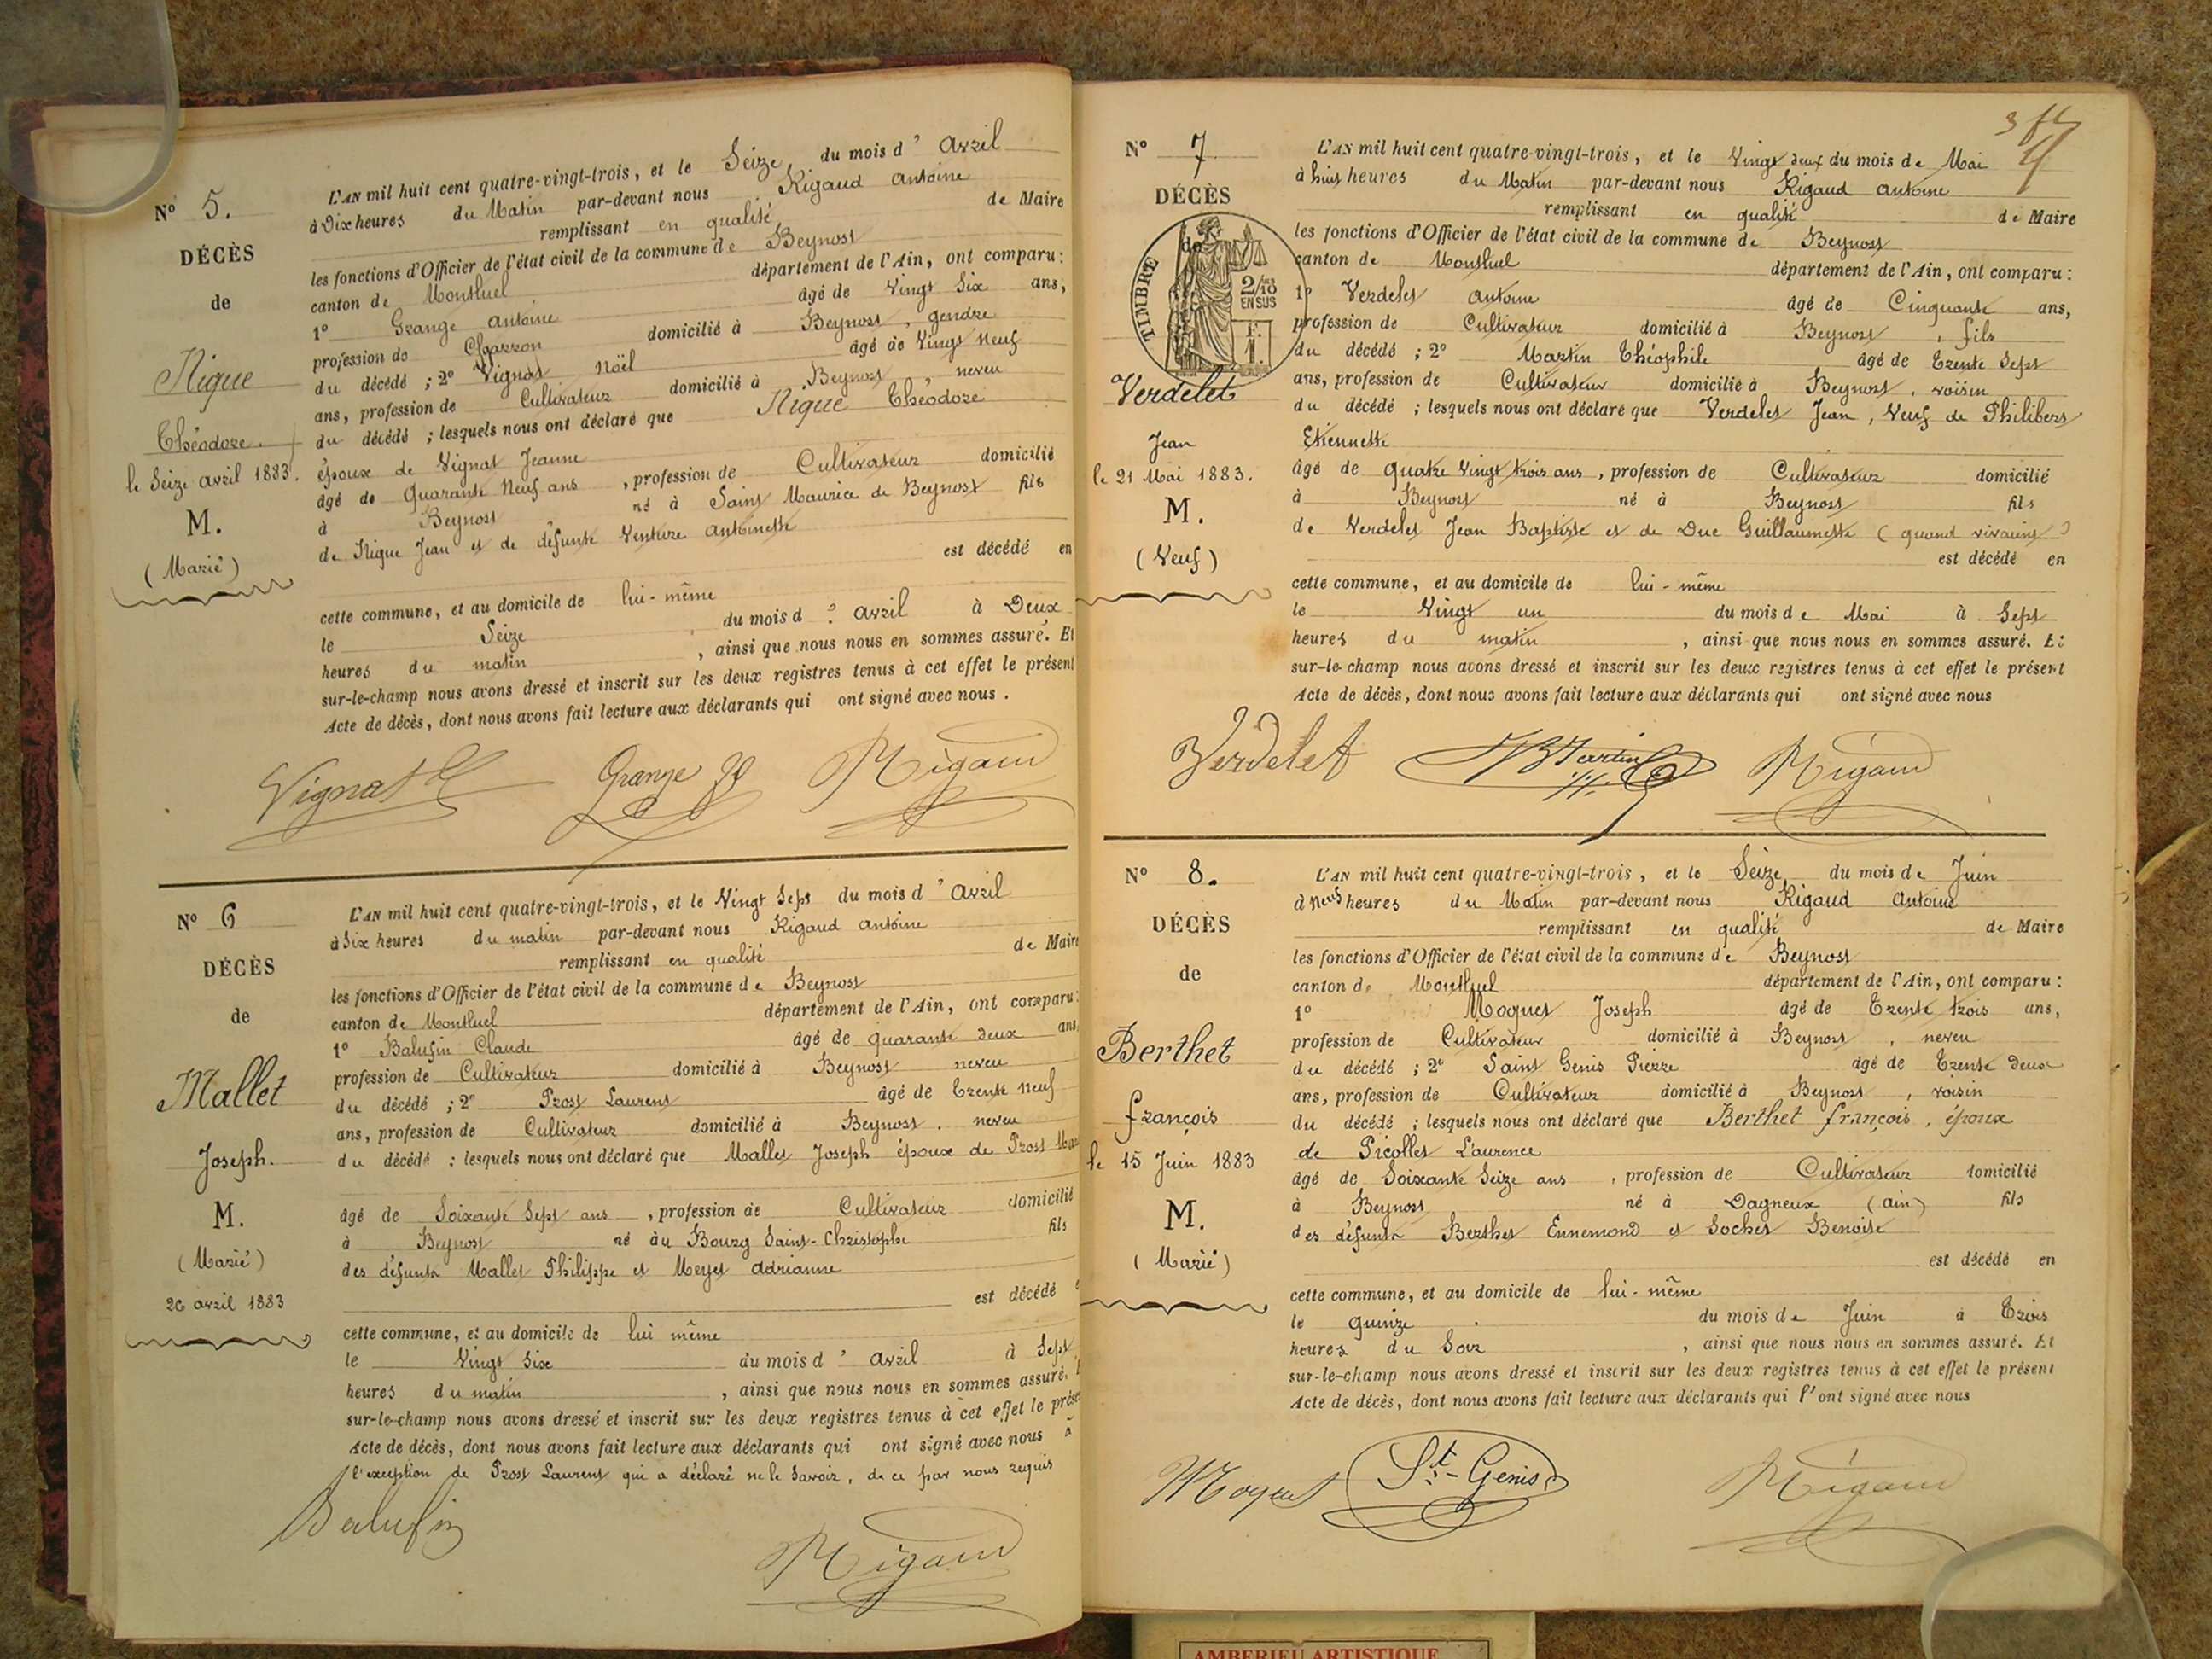 N° 5.
DÉCÈS
de
Nique
Théodore.
le Seize avril 1883.
M.
(Marié)
L'AN mil huit cent quatre-vingt-trois, et le Seize du mois d' avril
à Dix heures du Matin par-devant nous Rigaud Antoine
remplissant en qualité de Maire
les fonctions d'Officier de l'état civil de la commune de Beynost
canton de Montluel département de l'Ain, ont comparu:
1° Grange Antoine âgé de Vingt Six ans,
profession de Charron domicilié à Beynost, gendre
du décédé; 2° Vignat Noël âgé de Vingt Neuf
ans, profession de Cultivateur domicilié à Beynost, neveu
du décédé; lesquels nous ont déclaré que Nique Théodore
époux de Vignat Jeanne
âgé de Quarante Neuf ans, profession de Cultivateur domicilié
à Beynost né à Saint Maurice de Beynost fils
de Nique Jean et de défunte Venture Antoinette
est décédé en
cette commune, et au domicile de lui-même
le Seize du mois d' avril à Deux
heures du matin, ainsi que nous nous en sommes assuré. Et
sur-le-champ nous avons dressé et inscrit sur les deux registres tenus à cet effet le présent
Acte de décès, dont nous avons fait lecture aux déclarants qui ont signé avec nous.
Vignat Grange Rigaud
N° 6
DÉCÈS
de
Mallet
Joseph.
M.
(Marié)
26 avril 1883
L'AN mil huit cent quatre-vingt-trois, et le Vingt Sept du mois d' avril
à Six heures du matin par-devant nous Rigaud Antoine
remplissant en qualité de Maire
les fonctions d'Officier de l'état civil de la commune de Beynost
canton de Montluel département de l'Ain, ont comparu:
1° Balufin Claude âgé de quarante deux ans,
profession de Cultivateur domicilié à Beynost neveu
du décédé; 2° Prost Laurent âgé de Trente Neuf
ans, profession de Cultivateur domicilié à Beynost. neveu
du décédé; lesquels nous ont déclaré que Mallet Joseph époux de Prost
âgé de Soixante Sept ans, profession de Cultivateur domicilié
à Beynost né au Bourg Saint-Christophe fils
des défunts Mallet Philippe et Meyet Adrianne
est décédé
cette commune, et au domicile de lui même
le Vingt Six du mois d' avril à Sept
heures du matin, ainsi que nous nous en sommes assuré.
sur-le-champ nous avons dressé et inscrit sur les deux registres tenus à cet effet le prése
Acte de décès, dont nous avons fait lecture aux déclarants qui ont signé avec nous à
l'exception de Prost Laurent qui a déclaré ne le savoir, de ce par nous requis
Balufin Rigaud
N° 7
DÉCÈS
de
TIMBRE
2/10
EN SUS
Verdelet
Jean
le 21 Mai 1883.
M.
(Veuf)
L'AN mil huit cent quatre-vingt-trois, et le Vingt deux du mois de Mai
à huit heures du Matin par-devant nous Rigaud Antoine
remplissant en qualité de Maire
les fonctions d'Officier de l'état civil de la commune de Beynost
canton de Montluel département de l'Ain, ont comparu:
1° Verdelet Antoine âgé de Cinquante ans,
profession de Cultivateur domicilié à Beynost, fils
du décédé; 2° Martin Théophile âgé de Trente Sept
ans, profession de Cultivateur domicilié à Beynost, voisin
du décédé; lesquels nous ont déclaré que Verdelet Jean, Veuf de Philibert
Etiennette
âgé de quatre Vingt trois ans, profession de Cultivateur domicilié
à Beynost né à Beynost fils
de Verdelet Jean Baptiste et de Duc Guillaumette (quand vivaient)
est décédé en
cette commune, et au domicile de lui-même
le Vingt un du mois de Mai à Sept
heures du matin, ainsi que nous nous en sommes assuré. Et
sur-le-champ nous avons dressé et inscrit sur les deux registres tenus à cet effet le présent
Acte de décès, dont nous avons fait lecture aux déclarants qui ont signé avec nous
Verdelet Martin Rigaud
N° 8.
DÉCÈS
de
Berthet
François
le 15 Juin 1883
M.
(Marié)
L'AN mil huit cent quatre-vingt-trois, et le Seize du mois de Juin
à neuf heures du Matin par-devant nous Rigaud Antoine
remplissant en qualité de Maire
les fonctions d'Officier de l'état civil de la commune de Beynost
canton de Montluel département de l'Ain, ont comparu:
1° Moguet Joseph âgé de Trente trois ans,
profession de Cultivateur domicilié à Beynost, neveu
du décédé; 2° Saint Genis Pierre âgé de Trente Deux
ans, profession de Cultivateur domicilié à Beynost, voisin
du décédé; lesquels nous ont déclaré que Berthet François, époux
de Picollet Laurence
âgé de Soixante Seize ans, profession de Cultivateur domicilié
à Beynost né à Dagneux (Ain) fils
des défunts Berthet Ennemond et Sochet Benoite
est décédé en
cette commune, et au domicile de lui-même
le quinze du mois de Juin à Trois
heures du Soir, ainsi que nous nous en sommes assuré. Et
sur-le-champ nous avons dressé et inscrit sur les deux registres tenus à cet effet le présent
Acte de décès, dont nous avons fait lecture aux déclarants qui l'ont signé avec nous
Moguet St-Genis Rigaud
AMBERIEU ARTISTIQUE